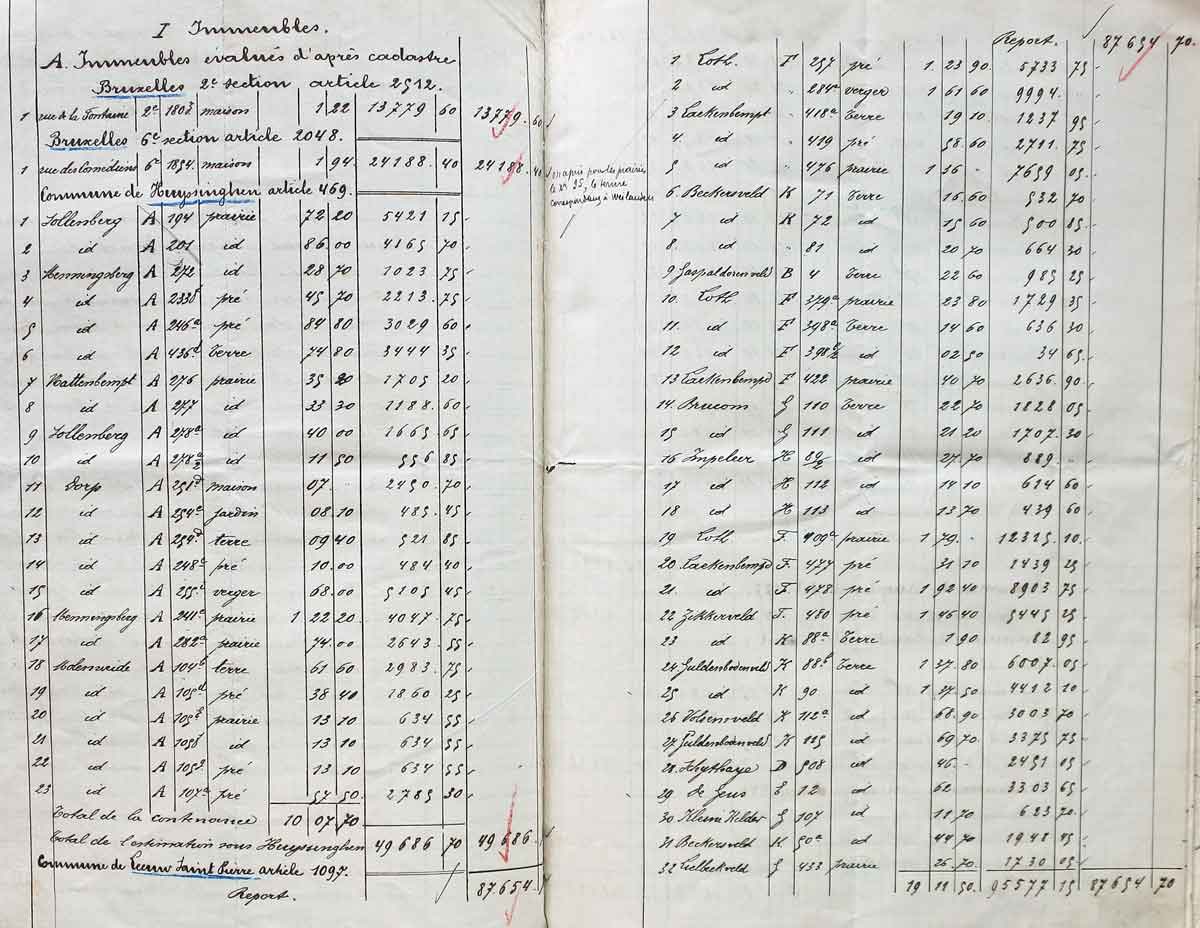 I Immeubles.
A. Immeubles évalués d'après cadastre
Bruxelles 2e section article 2512.
1 rue de la Fontaine 2e maison 1 22 13779 60 13779 60
Bruxelles 6e section article 2048.
1 rue des Comédiens 6e 1854 maison 1 94 24188 40 24188 40
Commune de Huyssinghen article 469.
1 Sollenberg A 194 prairie 72 20 5421 15
2 id A 201 id 86.00 4165 70
3 Henningsberg A 272 id 28 70 1023 75
4 id A pré 45 70 2213 75
5 id A 246a pré 84 80 3029 60
6 id A 436d terre 74 80 3444 35
7 Hattenbempt A 276 prairie 35 20 1705 20
8 id A 277 id 33 30 2188 60
9 Sollenberg A 278a id 40 00 1665 65
10 id A 278a/2 id 11 50 556 85
11 Dorp A maison 07. 2450 70
12 id A 254c jardin 08.10 485 45
13 id A 254d terre 09 40 521 85
14 id A 248c pré 10.00 484 40
15 id A 255c verger 68.00 5105 45
16 Henningsberg A 241a prairie 1 22 20 4047 75
17 id A 282a prairie 74.00 2643 55
18 Molenweide A 104b terre 61 60 2983 75
19 id A 105d pré 38 40 1860 25
20 id A prairie 13 10 634 55
21 id A id 13 10 634 55
22 id A pré 13 10 634 55
23 id A 107a pré 57 50 2785 30
Total de la contenance 10 07 70
Total de l'estimation sous Huyssinghen 49686 70 49686.
Commune de Leeuw Saint Pierre article 1097.
Report. 87.654
Report. 87654 70.
1 Loth. F 257 pré 1. 23 90. 5733 75
2 id " 284a verger 1 61 60 9994.
3 Lackenbempt " 418a terre 19 10 1237 95
4. id " 419 pré 58.60 2711. 75
5 id " 476 prairie 1 36 . 7659 05
6. Beckersveld K 71 terre 16.60 532 70
7 id K 72 id 15 60 500 85
8. id " 81 id 20 70 664 30
9 B 4 terre 22 60 985 25
10. Loth F 379a prairie 23 80 1729 35
11. id F 398a terre 14 60 636 30
12 id F id 02 50 34 65
13 Lackenbempd F 422 prairie 40 70 2636. 90
14. Brucom G 110 terre 22 70 1828 05
15 id G 111 id 21 20 1707. 30
16 Impeleer H 89/2 id 27 70 889
17 id H 112 id 14 10 614 60
18 id H 113 id 13 70 439 60
19 Loth F. 409a prairie 1 79 . 12315 10.
20. Lackenbempd F. 477 pré 31 10 1439 25
21. id F 478 pré 1 92 40 8903 75
22 Zikkerveld F. 480 pré 1 46 40 5445 25
23 id K 88a terre 1 90 82 95
24 Guldenbodenveld K 88b terre 1 37. 80 6007 05
25 id K 90 id 1 27. 50 4412 10
26 Volsemveld K 112a id 68. 90 3003 70
27 Guldenbodenveld K 115 id 69 70 3375 75
28. D 508 id 46 . 2451 05
29 de Geus E 12 id 62 3303 65
30 Kleine Helder G 107 id 11 70 623 70
31 Beckersveld K 50a id 44 70 1948 45
32 G 433 prairie 26. 70 1730 05
19 11 50. 95577 15 87654 70